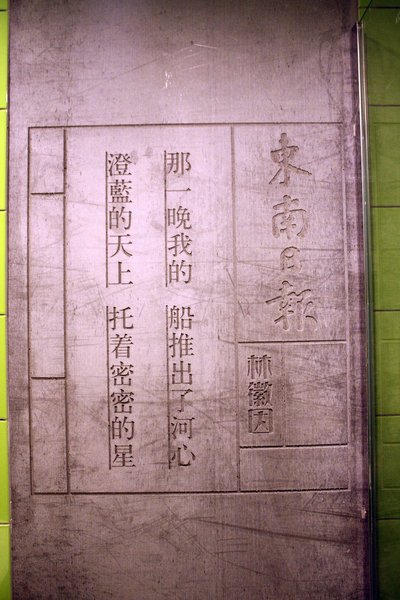 東南日報
林徽因
那一晚我的 船推出了河心
澄藍的天上 托着密密的星